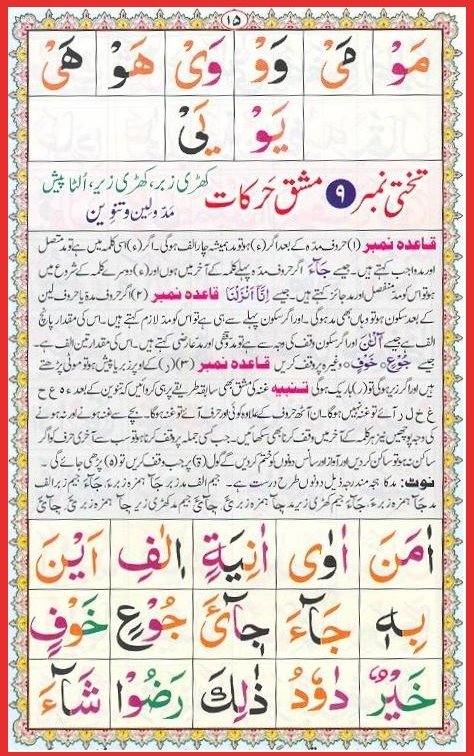 ۱۵
مَوْ مَیْ وَوْ وَیْ هَوْ هَیْ
یَوْ یَیْ
تختی نمبر ۹ مشق حَرکات کھڑی زبر، کھڑی زیر، اُلٹا پیش
مَدّ و لین و تنوین
قاعدہ نمبر (۱) حروف مدّہ کے بعد اگر (ء) ہو تو مد ہمیشہ چار الف ہوگی۔ اگر (ء) اسی کلمہ میں ہے تو مد متصل
اور مد واجب کہتے ہیں۔ جیسے جَآءَ اگر حروف مدّہ پہلے کلمہ کے آخر میں ہوں اور (ء) دوسرے کلمہ کے شروع میں
ہو تو اس کو مد منفصل اور مد جائز کہتے ہیں۔ جیسے اِنَّآ اَنْزَلْنَا قاعدہ نمبر (۲) اگر حروف مدہ یا حروف لین
کے بعد سکون ہو تو وہاں بھی مد ہوگی۔ اور اگر سکون پہلے سے ہی ہے تو اس کو مد لازم کہتے ہیں۔ اس کی مقدار پانچ
الف ہے جیسے آلْـٰٔنَ اور اگر سکون وقف کی وجہ سے ہے تو مد وقفی اور مد عارضی کہتے ہیں۔ اس کی مقدار تین الف ہے۔
جیسے جُوْعٍ، خَوْفٍ وغیرہ پر وقف کریں قاعدہ نمبر (۳) (ر) کے اوپر زبر یا پیش ہو تو موٹی پڑھتے
ہیں اور اگر زیر ہوگی تو (ر) باریک ہوگی تنبیہ غنہ کی مشق بھی سابقہ طریقے پر ہی کروائیں کہ تنوین کے بعد ء ہ ع ح
غ خ ل ر آئے تو غنہ نہیں ہوگا۔ ان آٹھ حروف کے علاوہ کوئی اور حرف آئے تو غنہ ہوگا۔ بچے سے غنہ ہونے اور نہ ہونے
کی وجہ پوچھیں نیز ہر کلمہ کے آخر میں وقف کرنا بھی سکھائیں۔ جب کسی جملہ پر وقف کرنا ہو تو سب سے آخری حرف کو اگر
ساکن نہ ہو تو ساکن کر دیں اور آواز اور سانس دونوں کو ختم کر دیں گے گول (ۃ) پر جب وقف کریں تو (ہ) پڑھی جائے گی۔
نوٹ: مد کا ہجہ مندرجہ ذیل دونوں طرح درست ہے۔ جیم الف مد زبر جَآ ہمزہ زبر ءَ جَآءَ جیم زبر الف
مد جَآ ہمزہ زبر ءَ جَآءَ
اٰمَنَ اٰوٰی اٰنِیَةٍ اٖلٰفِ اَیْنَ
بِهٖ جَآءَ جِایْٓءَ جُوْعٍ خَوْفٍ
خَیْرٌ دَاوٗدُ ذٰلِكَ رَضُوْا شَآءَ